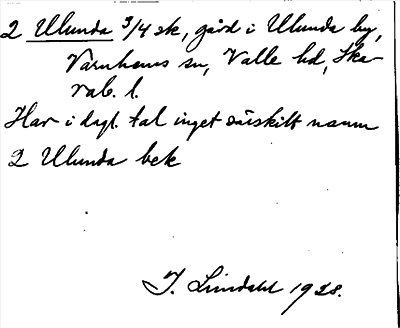 2 Ulunda 3/4 sk, gård i Ulunda by,
Varnhems sn, Valle hd, Ska-
rab. l.
Har i dagl. tal inget särskilt namn
2 Ulunda bek
J. Lindahl 1928.